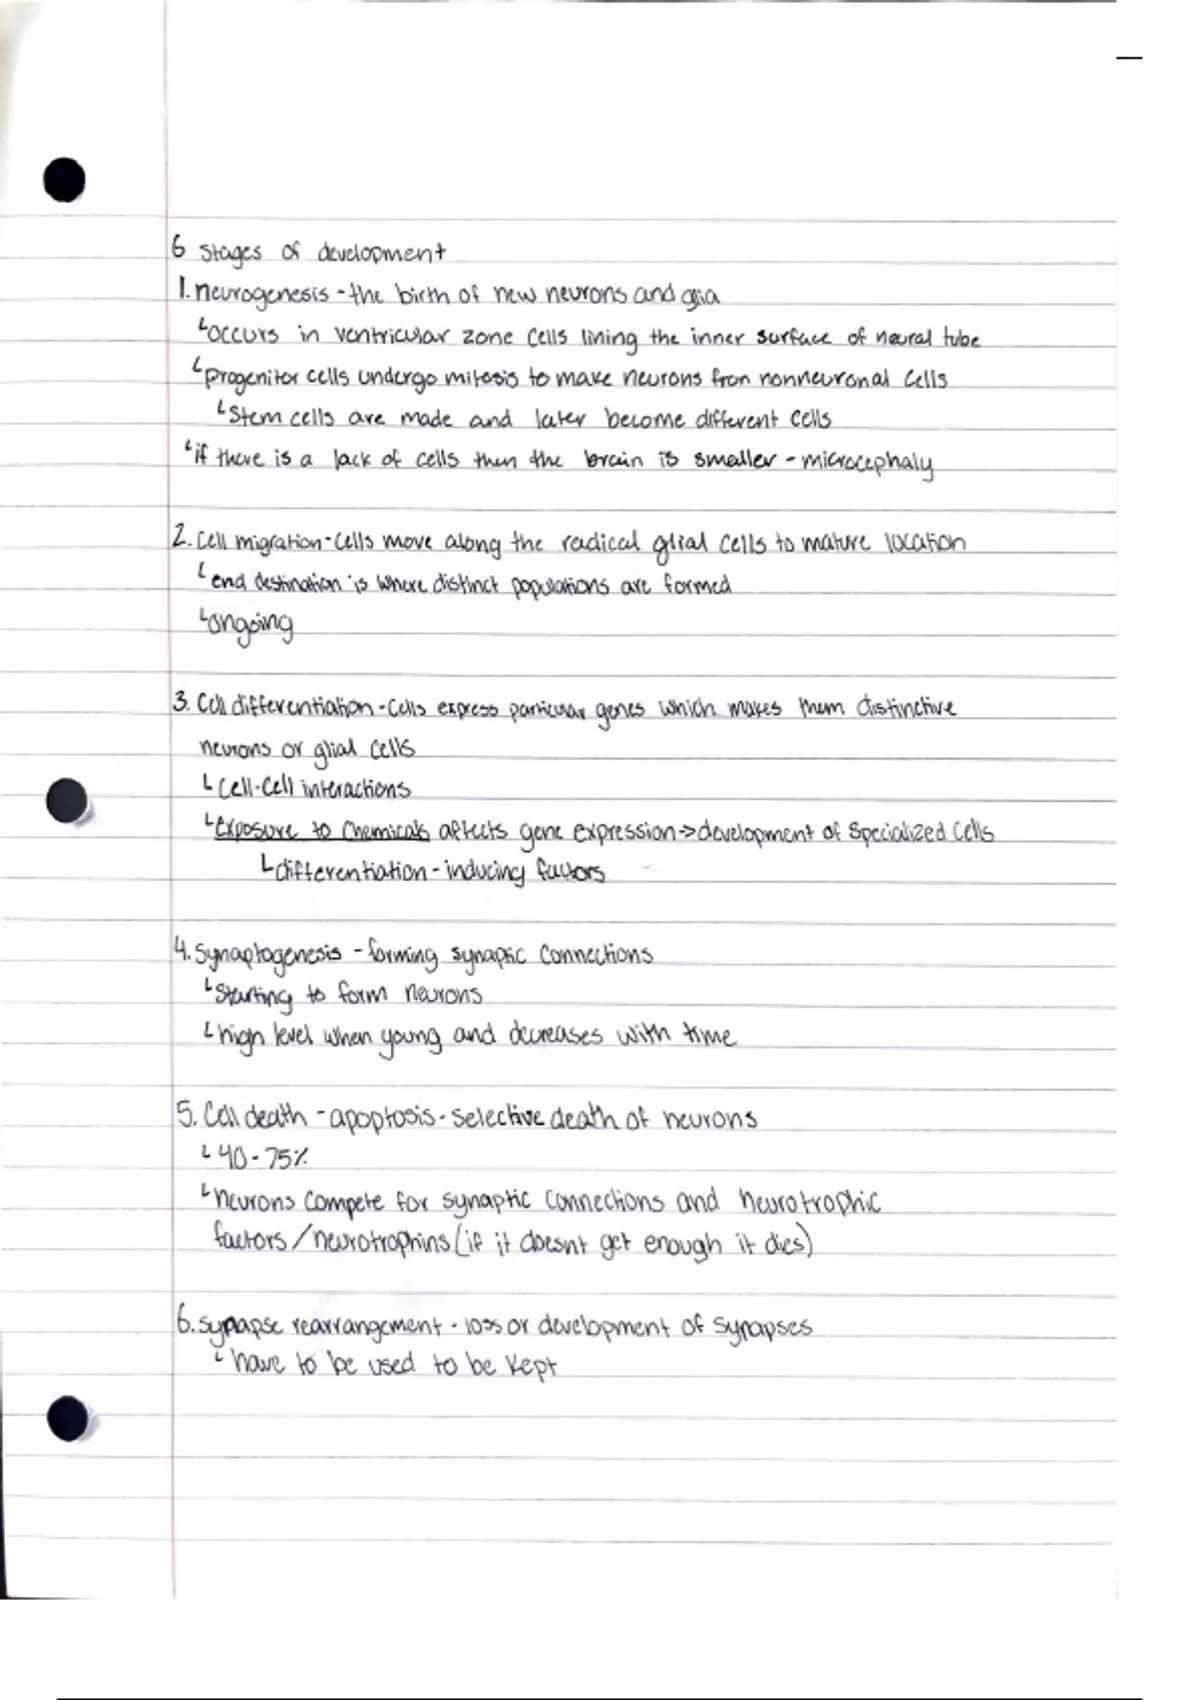 6 stages of development
1. neurogenesis - the birth of new neurons and glia
└occurs in ventricular zone cells lining the inner surface of neural tube
└progenitor cells undergo mitosis to make neurons from nonneuronal cells
└stem cells are made and later become different cells
└if there is a lack of cells then the brain is smaller - microcephaly
2. Cell migration - cells move along the radical glial cells to mature location
└end destination is where distinct populations are formed
└ongoing
3. Cell differentiation - cells express particular genes which makes them distinctive
neurons or glial cells
└cell-cell interactions
└exposure to chemicals affects gene expression→development of specialized cells
└differentiation - inducing factors
4. Synaptogenesis - forming synaptic connections
└starting to form neurons
└high level when young and decreases with time
5. Cell death - apoptosis - selective death of neurons
└40 - 75%
└neurons compete for synaptic connections and neurotrophic
factors / neurotrophins (if it doesnt get enough it dies)
6. synapse rearrangement - loss or development of synapses
└have to be used to be kept